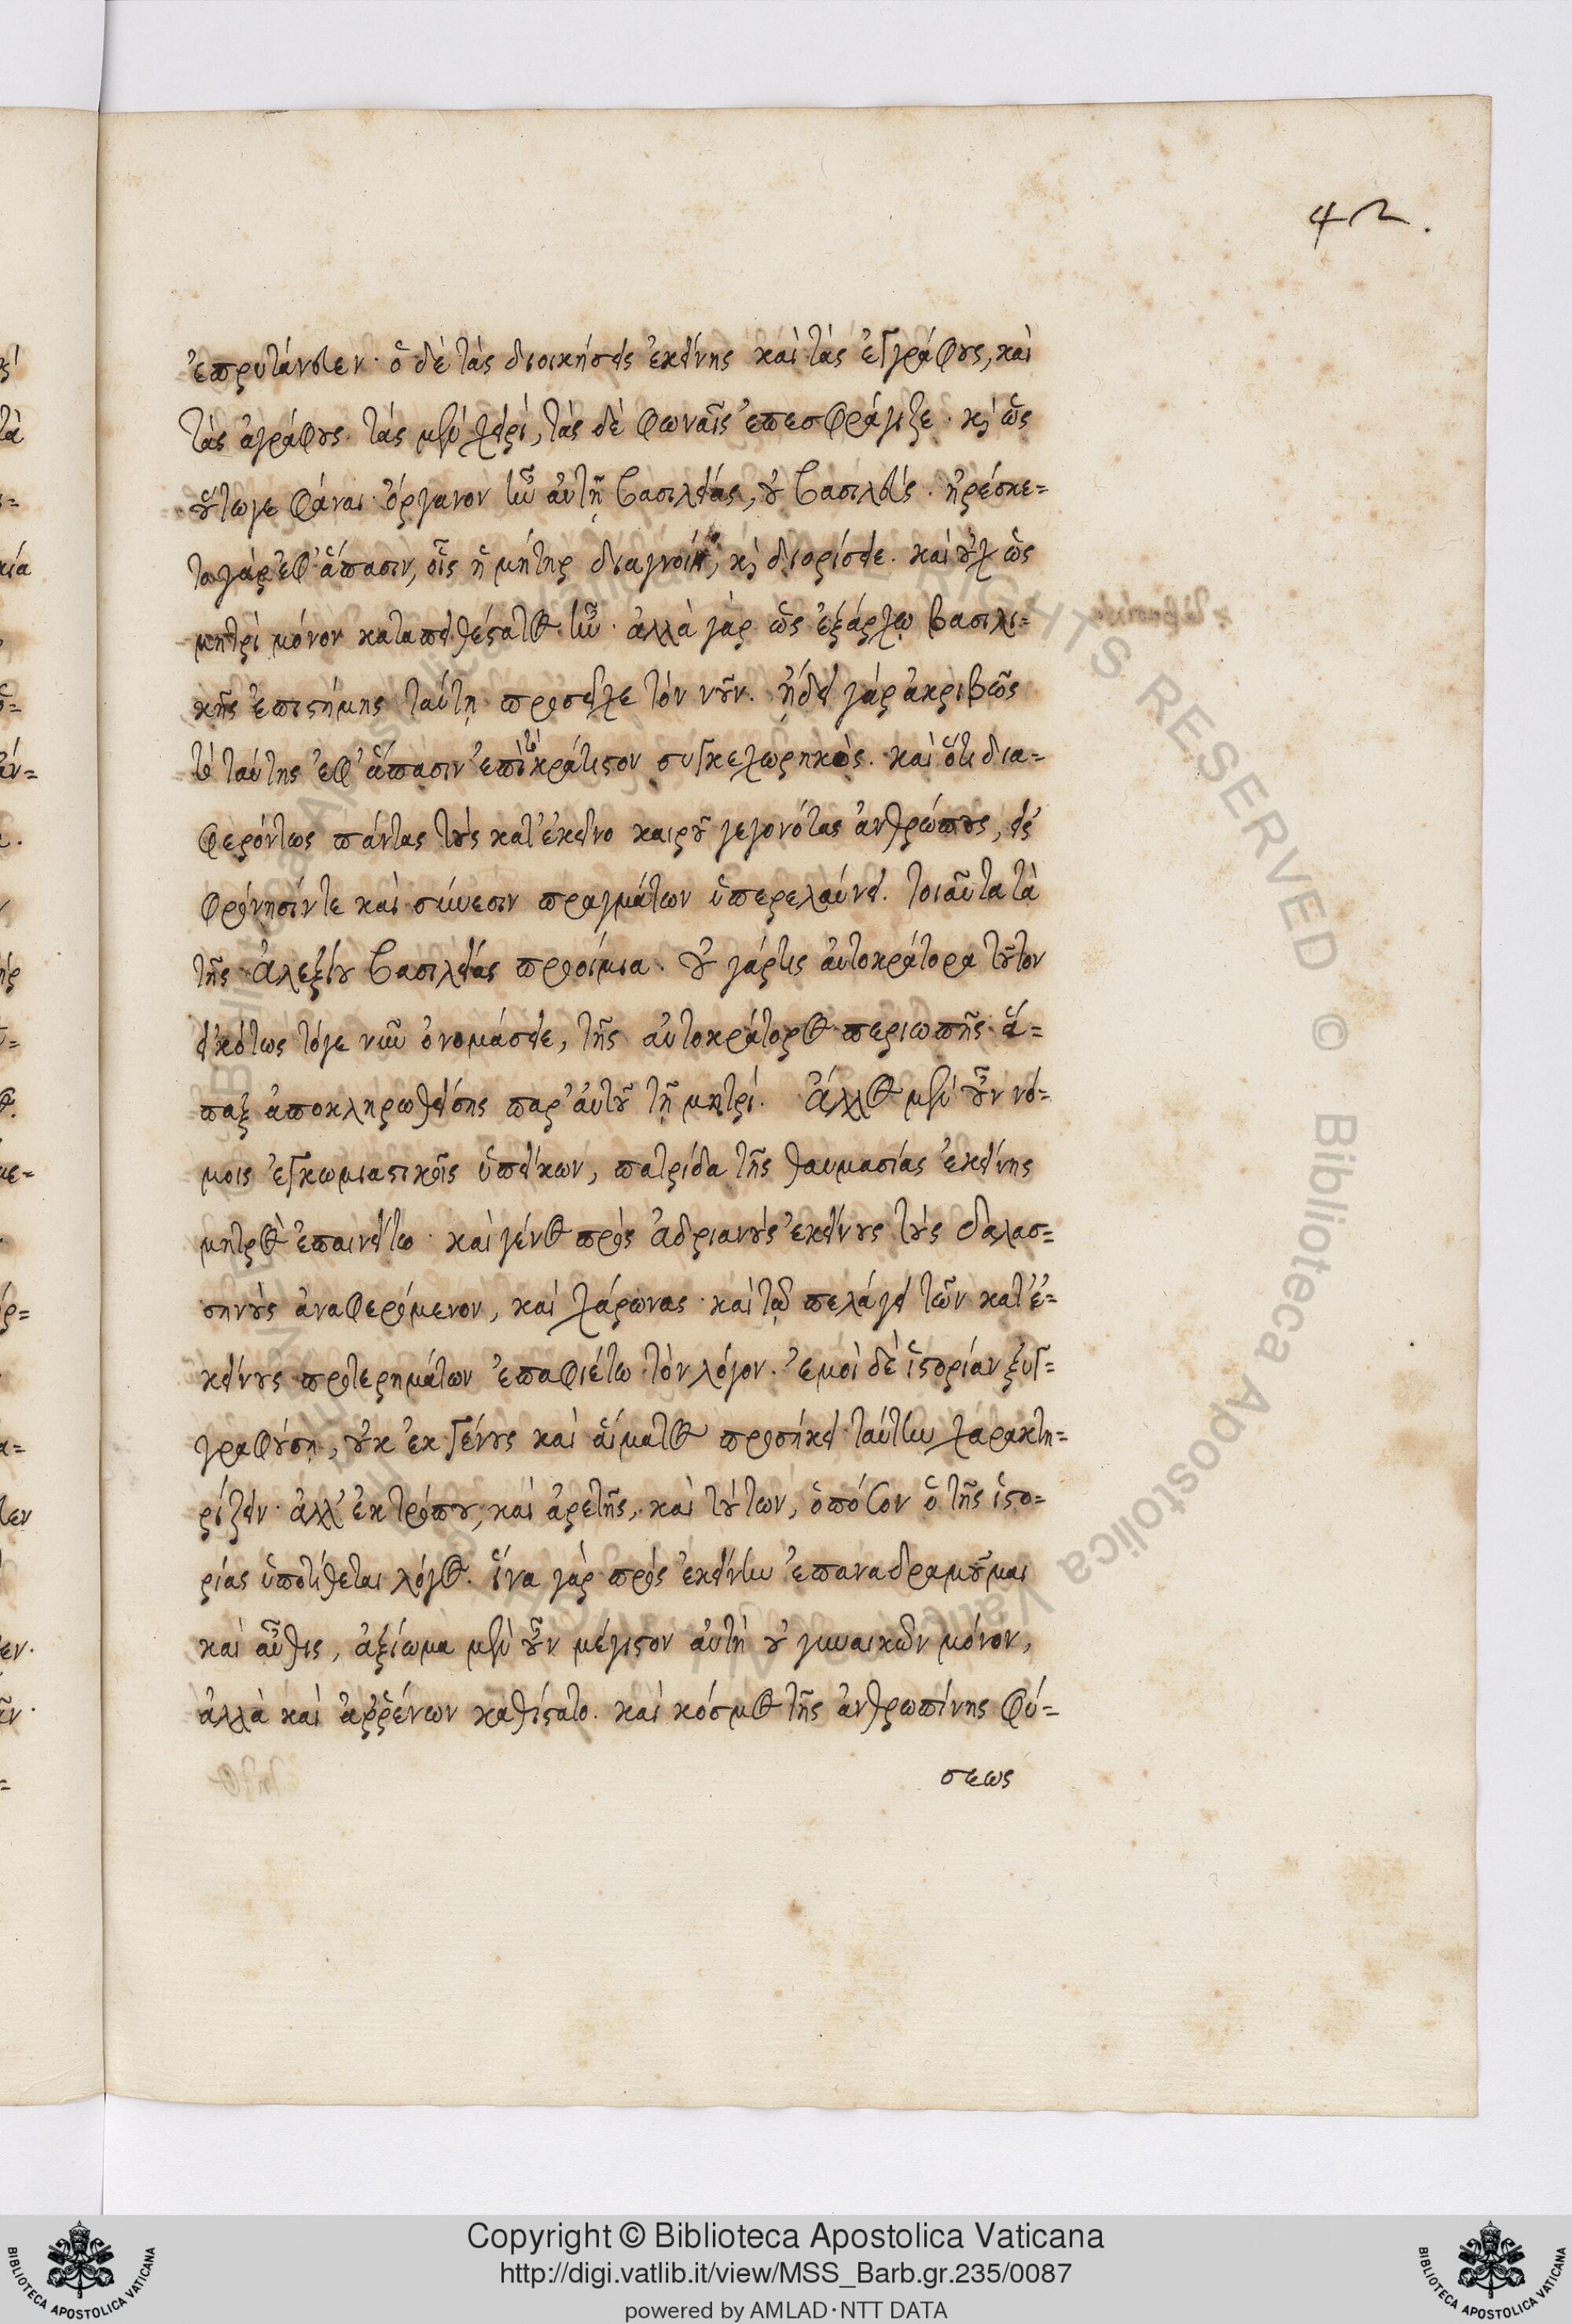 42.
ἐπρυτάνευεν· ὁ δὲ τὰς διοικήσεις ἐκείνης καὶ τὰς ἐγγράφους, καὶ
τὰς ἀγράφους· τὰς μὲν χειρὶ, τὰς δὲ φωναῖς ἐπεσφράγιζε· κỳ ὡς
οὕτωγε φάναι· ὄργανον ἦν αὐτῇ βασιλείας, οὐ βασιλεύς. ἠρέσκε=
το γὰρ ἐφ' ἅπασιν, οἷς ἡ μήτηρ διαγνοίη, κỳ διορίσειε. καὶ οὐχ ὡς
μητρὶ μόνον καταπειθέστατος ἦν· ἀλλὰ γὰρ ὡς ἐξάρχῳ βασιλι=
κῆς ἐπιστήμης ταύτῃ προσεῖχε τὸν νοῦν. ᾔδει γὰρ ἀκριβῶς
τὲ ταύτης ἐφ' ἅπασιν ἐπὶ τὸ κράτιστον συγκεχωρηκὸς. καὶ ὅτι δια=
φερόντως πάντας τοὺς κατ' ἐκεῖνο καιροῦ γεγονότας ἀνθρώπους, εἰς
φρόνησίν τε καὶ σύνεσιν πραγμάτων ὑπερελαύνει. τοιαῦτα τὰ
τῆς Ἀλεξίου βασιλείας προοίμια. οὐ γάρ τις αὐτοκράτορα τοῦτον
εἰκότως τόγε νῦν ὀνομάσειε, τῆς αὐτοκράτορος περιωπῆς ἅ=
παξ ἀποκληρωθείσης παρ' αὐτοῦ τῇ μητρί. Ἄλλος μὲν οὖν νό=
μοις ἐγκωμιαστικοῖς ὑπείκων, πατρίδα τῆς θαυμασίας ἐκείνης
μητρὸς ἐπαινείτω· καὶ γένος πρὸς Ἀδριανοὺς ἐκείνους τοὺς Δαλασ=
σηνοὺς ἀναφερόμενον, καὶ χάρωνας· καὶ τῷ πελάγει τῶν κατ' ἐ=
κείνους προτερημάτων ἐπαφιέτω τὸν λόγον. ἐμοὶ δὲ ἱστορίαν ξυγ=
γραφούσῃ, οὐκ ἐκ γένους καὶ αἵματος προσήκει ταύτην χαρακτη=
ρίζειν· ἀλλ' ἐκ τρόπου, καὶ ἀρετῆς, καὶ τούτων, ὁπόσον ὁ τῆς ἱστο=
ρίας ὑποτίθεται λόγος. ἵνα γὰρ πρὸς ἐκείνην ἐπαναδραμοῦμαι
καὶ αὖθις, ἀξίωμα μὲν οὖν μέγιστον αὐτὴ οὐ γυναικῶν μόνον,
ἀλλὰ καὶ ἀῤῥένων καθίστατο. καὶ κόσμος τῆς ἀνθρωπίνης φύ=
σεως
Copyright © Biblioteca Apostolica Vaticana
http://digi.vatlib.it/view/MSS_Barb.gr.235/0087
powered by AMLAD·NTT DATA